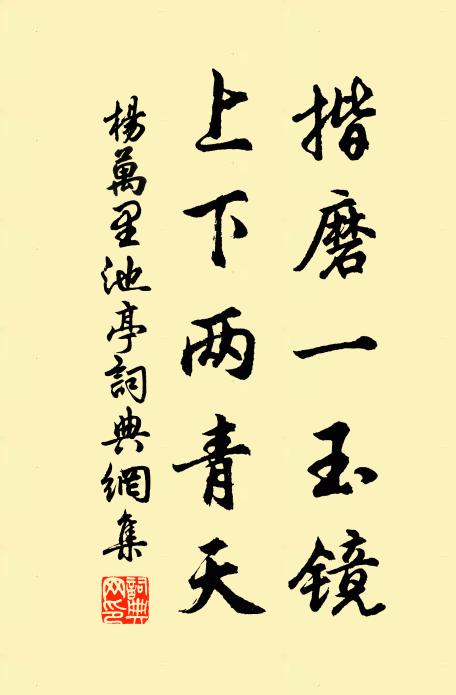 揩磨一玉镜
上下两青天
楊萬里池亭詞典網集
詞典網印